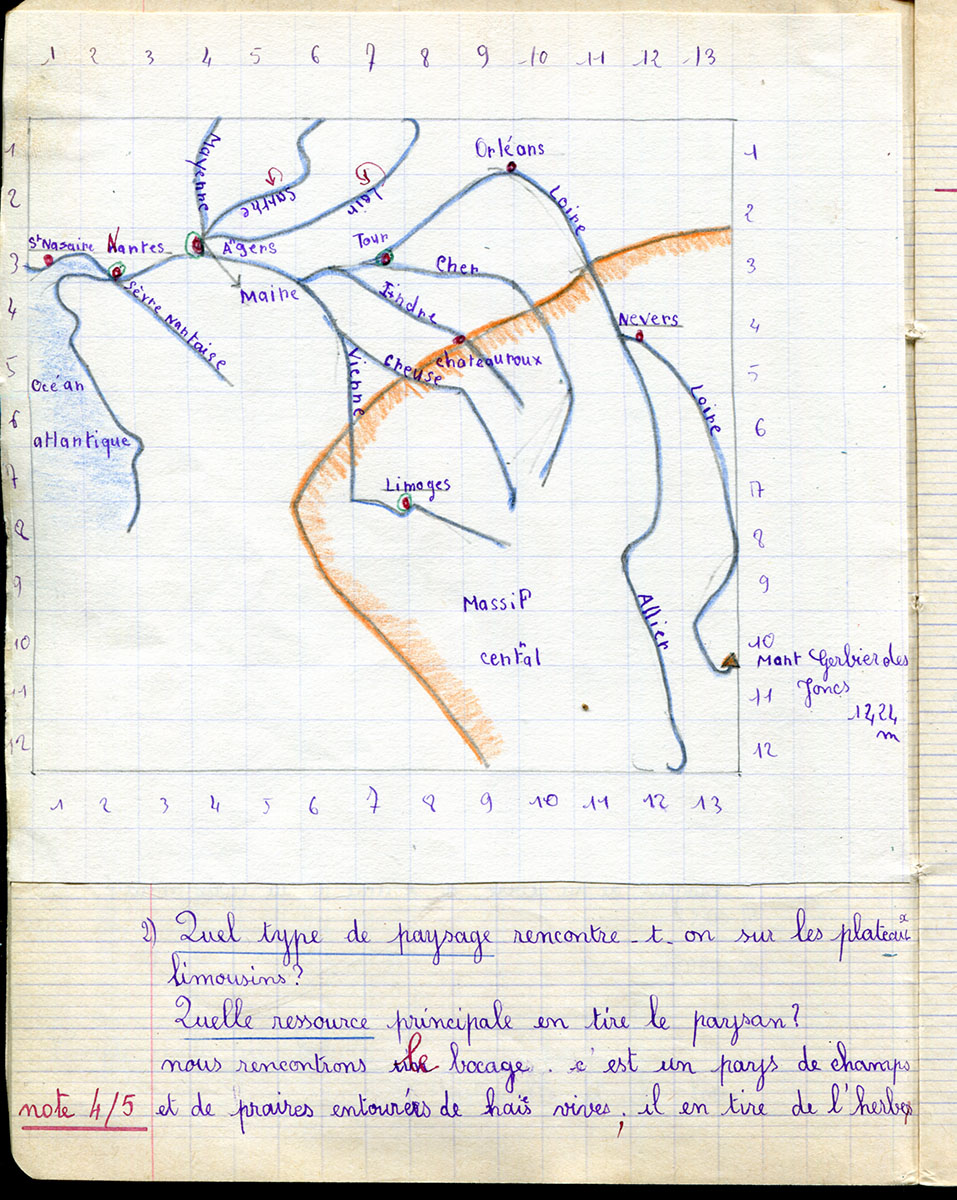 1 2 3 4 5 6 7 8 9 10 11 12 13
1
2
3
4
5
6
7
8
9
10
11
12
Mayenne
Sarthe
Loir
Orléans
Loire
St Nasaire
Nantes
Angers
Tour
Cher
Maine
Indre
Sèvre Nantaise
Nevers
chateauroux
Creuse
Vienne
Loire
Océan
atlantique
Limoges
Massif
central
Allier
Mont Gerbier des
Joncs
m
1
2
3
4
5
6
17
8
9
10
11
12
1 2 3 4 5 6 7 8 9 10 11 12 13
2) Quel type de paysage rencontre-t-on sur les plateaux
limousins?
Quelle ressource principale en tire le paysan?
nous rencontrons le bocage. c'est un pays de champs
note 4/5 et de praires entourées de haies vives; il en tire de l'herbe